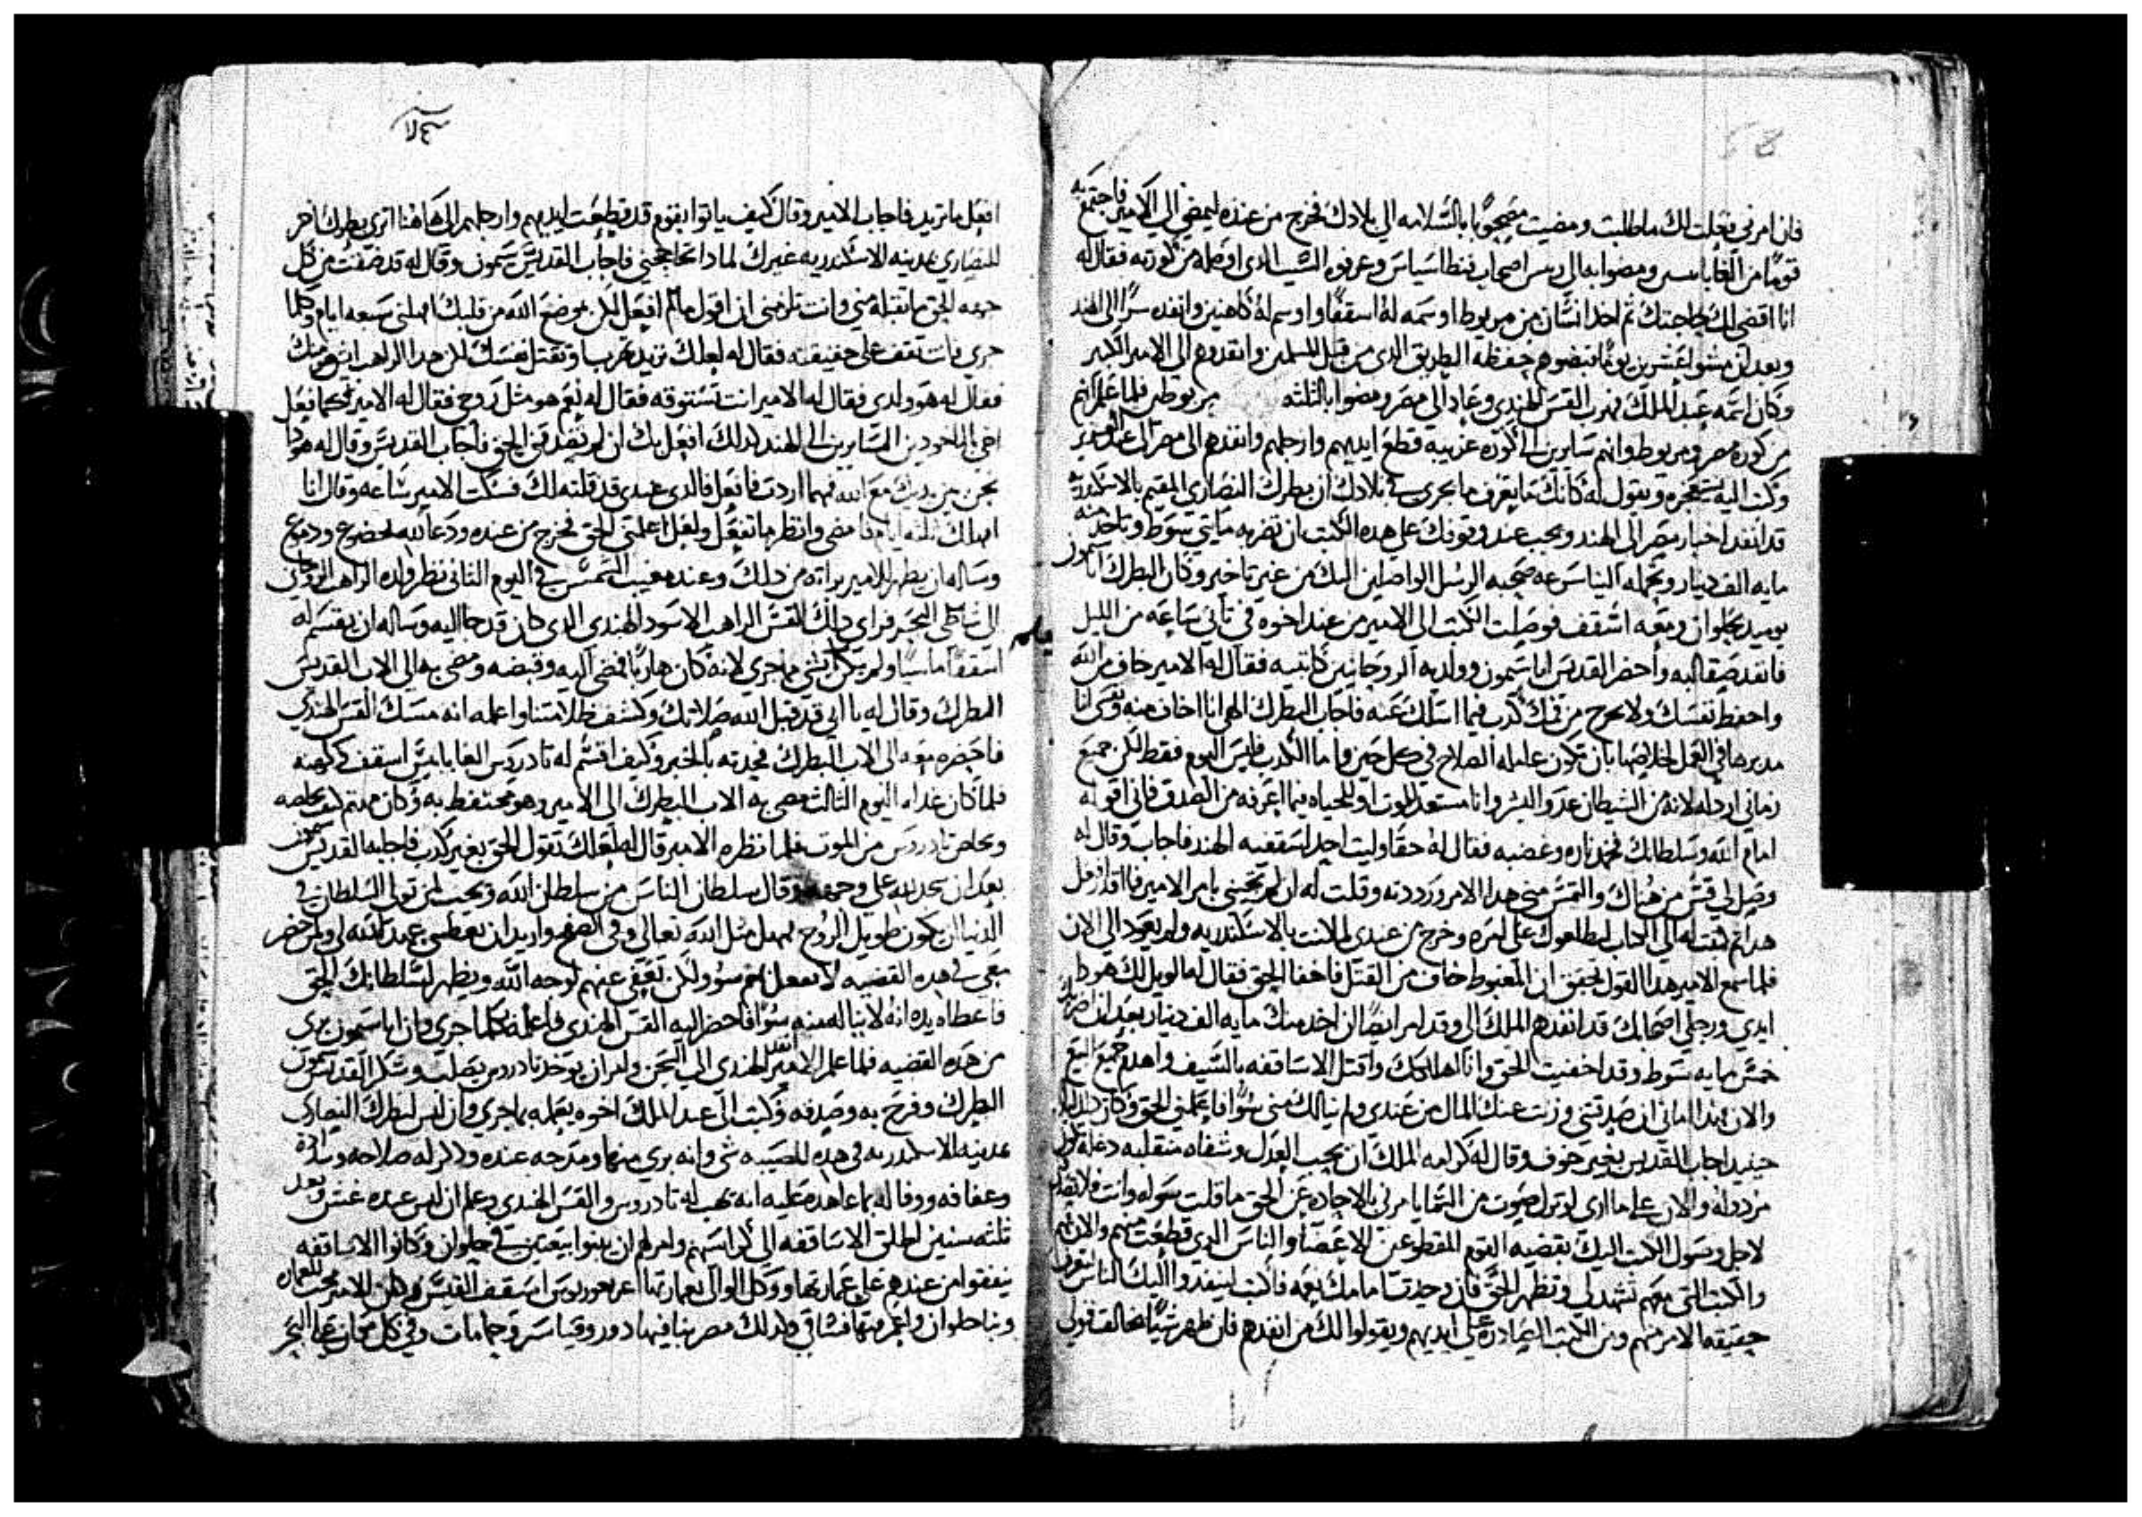 فان امرني فعلت لك ما طلبت ومضيت مصحوبا بالسلامه الي بلادك فخرج من عنده ليمضي الي الامير فاجتمع به
قوما من الغايانسس ومضوا به الي ريس اصحاب فنطاسياس وعرفوه السبب الذي اوصله من كورته فقال له
انا اقضي لك حاجتك ثم اخذ انسان من مريوط اوسمه له اسقفا واوسم له كاهنين وانفده سرا الي الهند
وبعد ان مشوا عشرين يوما قبضوهم حفظة الطريق الذي من قبل المسلمين وانفدوهم الي الامير الكبير
وكان اسمه عبد الملك فهرب القس الهندي وعاد الي مصر ومضوا بالثلثه مربوطين فلما علم انهم
من كورة مصر ومريوط وانهم سايرين الي كوره غريبه قطع ايديهم وارجلهم وانفدهم الي مصر الي عبد العزيز
وكتب اليه يستعجزه ويقول له كانك ما تعرف ما يجري في بلادك ان بطرك النصاري المقيم بالاسكندريه
قد انفد اخبار مصر الي الهند ويجب عند وقوفك علي هذه الكتب ان تضربه مايتي سوط وتاخد منه
مايه الف دينار وتحمله الينا سرعه صحبه الرسل الواصلين اليك من غير تاخير وكان البطرك انبا سيمون
يوميد بحلوان ومعه اسقف فوصلت الكتب الي الامير من عند اخوه في تاني ساعه من الليل
فانفد صقالبه واحضر القديس انبا سيمون وولديه الروحانيين كاتبيه فقال له الامير خاف من الله
واحفظ نفسك ولا يخرج من فمك كدب فيما اسلك عنه فاجاب البطرك الهي انا اخاف منه ونفسي انا
مدبرها في العمل لخلاصها بان تكون عامله الصلاح في كل حين واما الكدب فليس اليوم فقط لكن جميع
زماني اردله لانه من الشيطان عدو البشر وانا مستعد للموت او للحياه فيما اعرفه من الصدق فاني اقوله
امام الله وسلطانك فخمد ناره وغضبه فقال له حقا وليت احد اسقفيه الهند فاجاب وقال له
وصل لي قس من هناك والتمس مني هدا الامر ورددته وقلت له ان لم تجيني بامر الامير فما اقدر افعل
هدا ثم كتب له الي الكتاب ليطلعوك علي امره وخرج من عندي لما كنت بالاسكندريه ولم يعود الي الان
فلما سمع الامير هدا القول تحقق ان المغبوط خاف من القتل فاخفا الحق فقال له الويل لك هودا
ايدي ورجلي اصحابك قد انفدهم الملك الي وقد امر ايضا ان اخد منك مايه الف دينار بعد ان اضربك
خمس مايه سوط وقد اخفيت الحق وانا اهلكك واقتل الاساقفه بالسيف واهدم جميع البيع
والان هدا اماني ان صدقتني وزنت عنك المال من عندي ولم ينالك مني سوا فاعلمني الحق وكان
حينيد اجاب القديس بغير خوف وقال له كرامه الملك ان يحب العدل وشفاه متقلبه دغله تكون
مردوله والان علي ما اري لو نزل صوت من السما يامرني بالاحاده عن الحق ما قلت سوله وانت فلا تصدق
لاجل وصول الكتب اليك بقضيه القوم المقطوعين الاعضا والناس الدي قطعت منهم والان هم
والكتب التي معهم تشهد لي وتظهر الحق فان وجدت امامك نعمه فاكتب لينفدوا اليك الناس لتعرف
حقيقه الامر منهم ومن الكتب الصادره علي ايديهم ويقولوا لك من انفدهم فان ظهر شيا يخالف قولي
١٤٣
افعل ما تريد فاجاب الامير وقال كيف ياتوا بقوم قد قطعت ايديهم وارجلهم الي هاهنا اتري بطرك اخر
للنصاري بمدينه الاسكندريه غيرك لمادا تحاججني فاجاب القديس سيمون وقال له قد ضقت من كل
جهه الحق ما تقبله مني وانت تلزمني ان اقول ما لم افعل لكن بموضع الله من قلبك امهلني سبعه ايام وكلما
جري بات تقف علي حقيقته فقال له لعلك تريد تهرب او تقتل نفسك لان هدا الراهب
فقال له هو ولدي فقال له الامير انت تستوثقه فقال له نعم هو مثل روحي فقال له الامير كما نفعل
اخي بالماخودين السايرين الي الهند كدلك افعل بك ان لم تصدقني الحق فاجاب القديس وقال له هودا
نحن بين يديك مع الله فمهما اردت فافعل فالدي عندي قد قلته لك فسكت الامير ساعه وقال انا
امهلك ثلثه ايام فامضي وانظر ما تفعل ولعل اعلمتني الحق فخرج من عنده ودعا لله بخضوع ودموع
وساله ان يظهر للامير براته من دلك وعنده مغيب الشمس في اليوم الثاني نظر ولده الراهب الروحاني
الي شاطي البحر فراي دلك القس الراهب الاسود الهندي الدي كان قد جا اليه وساله ان يقسم له
اسقفا ولم يكن بشي ما جري لانه كان هاربا فمضي اليه وقبضه ومضي به الي الاب القديس
البطرك وقال له يا ابي قد قبل الله صلاتك وكشف ظلامتنا واعلمه انه مسك القس الهندي
فاحضره معه الي الاب البطرك فحدثه بالخبر وكيف اقسم له تادرس الغاياني اسقف كهنه
فلما كان غداه اليوم الثالث مضي به الاب البطرك الي الامير وهو محتفظ به وكان مهتم كيف يخلصه
ويخلص تادروس من الموت فلما نظره الامير قال له لعلك تقول الحق بغير كدب فاجابه القديس سيمون
بعد ان سجد لله علي وجهه وقال سلطان الناس من سلطان الله ويجب لمن تولي السلطان في
الدنيا ان يكون طويل الروح يمهل مثل الله تعالي واريد ان تعطيني عهد الله لي ولمن حضر
معي في هده القضيه لا تفعل بهم سوا ولكن تعفي عنهم لوجه الله ويظهر لسلطانك الحق
فاعطاه يده انه لا يناله منه سوا فاحضر اليه القس الهندي فاعلمه كلما جري وان انبا سيمون بري
من هده القضيه فلما علم الامير انفد الهندي الي السجن وامر ان يوخد تادروس يصلب وشكر القديس سيمون
البطرك وفرح به وصدقه وكتب الي عبد الملك اخوه يعلمه بما جري وان ليس لبطرك النصاري
بمدينه الاسكندريه في هده المصيبه شي وانه بري منها ومدحه عنده ودكر له صلاحه
وعفافه ووفا له بما عاهده عليه انه يهب له تادروس والقس الهندي وبعد
ثلثه سنين اطلق الاساقفه الي كراسيهم وامرهم ان يبنوا بيعتين في حلوان وكانوا الاساقفه
ينفقوا من عندهم علي عمارتها ووكل الوالي بعمارتها اغريغوريوس اسقف القيس وكان الامير محب للعماره
وبنا حلوان وكدلك مصر بنا فيها دور وقياسر وحمامات وفي كل مكان علي البحر